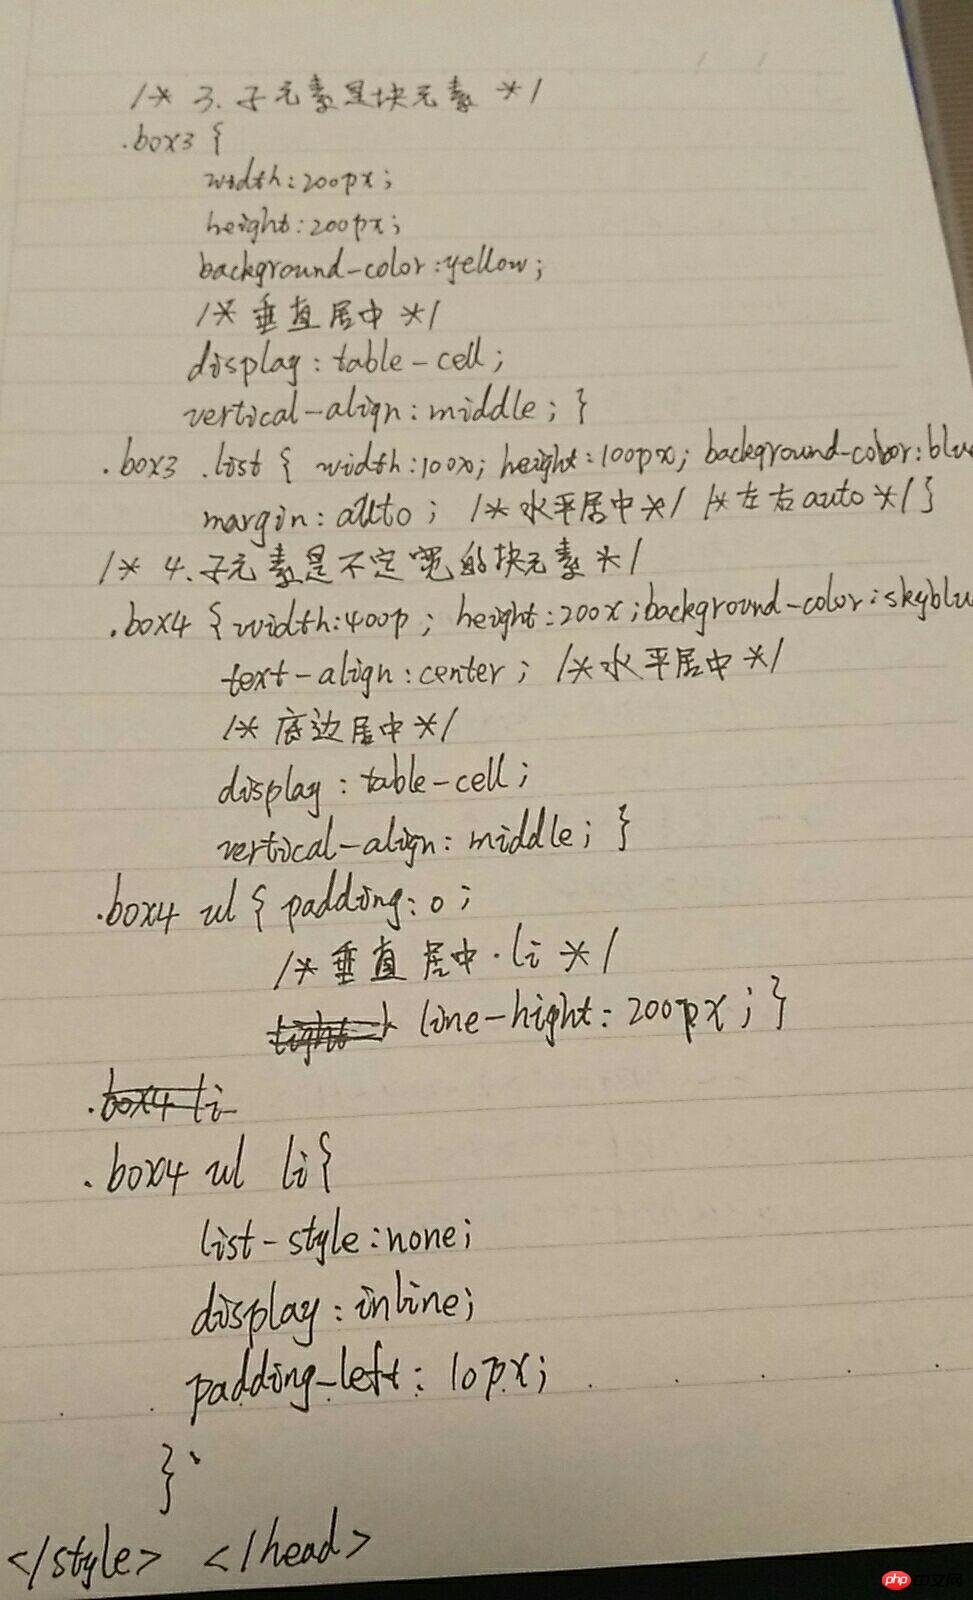 /* 3. 子元素是块元素 */
.box3 {
width:200px;
height:200px;
background-color:yellow;
/* 垂直居中 */
display:table-cell;
vertical-align:middle; }
.box3 .list { width:100x; height:100px; background-color:blue
margin: auto; /* 水平居中 */ /* 左右auto */ }
/* 4. 子元素是不定宽的块元素 */
.box4 { width:400p; height:200x; background-color:skyblu
text-align:center; /* 水平居中 */
/* 底边居中 */
display:table-cell;
vertical-align:middle; }
.box4 ul { padding:0;
/* 垂直居中.li */
line-hight:200px; }
.box4 li
.box4 ul li{
list-style:none;
display:inline;
padding-left:10px;
}
</style> </head>
php中文网